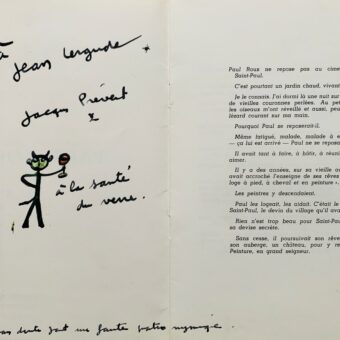 à
Jean
Jacques Prévert
x
à la santé
du verre.
fait une faute
Paul Roux ne se repose pas au cime
Saint-Paul.
C'est pourtant un jardin chaud, vivant
Je le connais. J'ai dormi là une nuit sur
de vieilles couronnes perlées. Au pet
les oiseaux m'ont réveillé et aussi, peu
lézard courant sur ma main.
Pourquoi Paul se reposerait-il.
Même fatigué, malade, malade à e
— ça lui est arrivé — Paul ne se repos
Il avait tant à faire, à bâtir, à réuni
aimer.
Il y a des années, sur sa vieille au
avait accroché l'enseigne de ses rêves
loge à pied, à cheval et en peinture ».
Les peintres y descendaient.
Paul les logeait, les aidait. C'était le
Saint-Paul, le devin du village qu'il ava
Rien n'est trop beau pour Saint-Paul
sa devise secrète.
Sans cesse, il poursuivait son rêve
son auberge, un château, pour y re
Peinture, en grand seigneur.